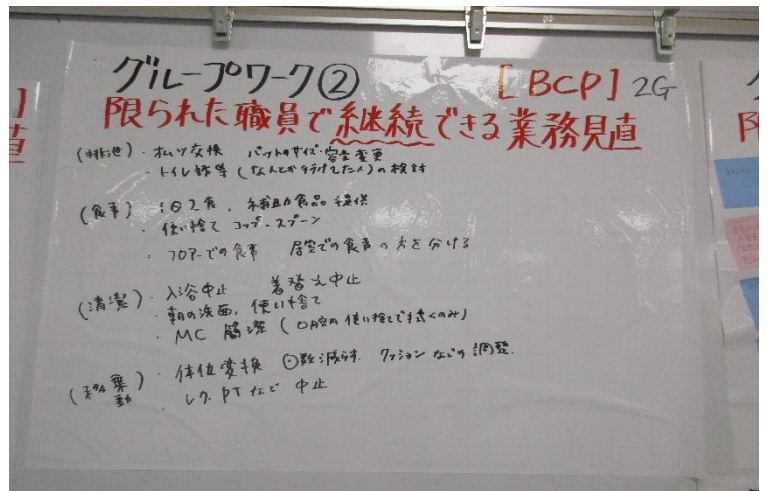 グループワーク② [BCP] 2G
限られた職員で継続できる業務見直
(排泄)・オムツ交換 パットのサイズ・容量変更
・トイレ誘導 (なんとか行けてた人)の検討
(食事) 1日2食、補助食品提供
使い捨て コップ・スプーン
・フロアーでの食事 居室での食事の方を分ける
(清潔)・入浴中止 着替え中止
・朝の洗面、使い捨て
・MC 簡潔 (口腔内 使い捨てで拭くのみ)
(移動)・体位変換 回数減らす。クッションなどの調整。
・レク、PTなど 中止
]
直